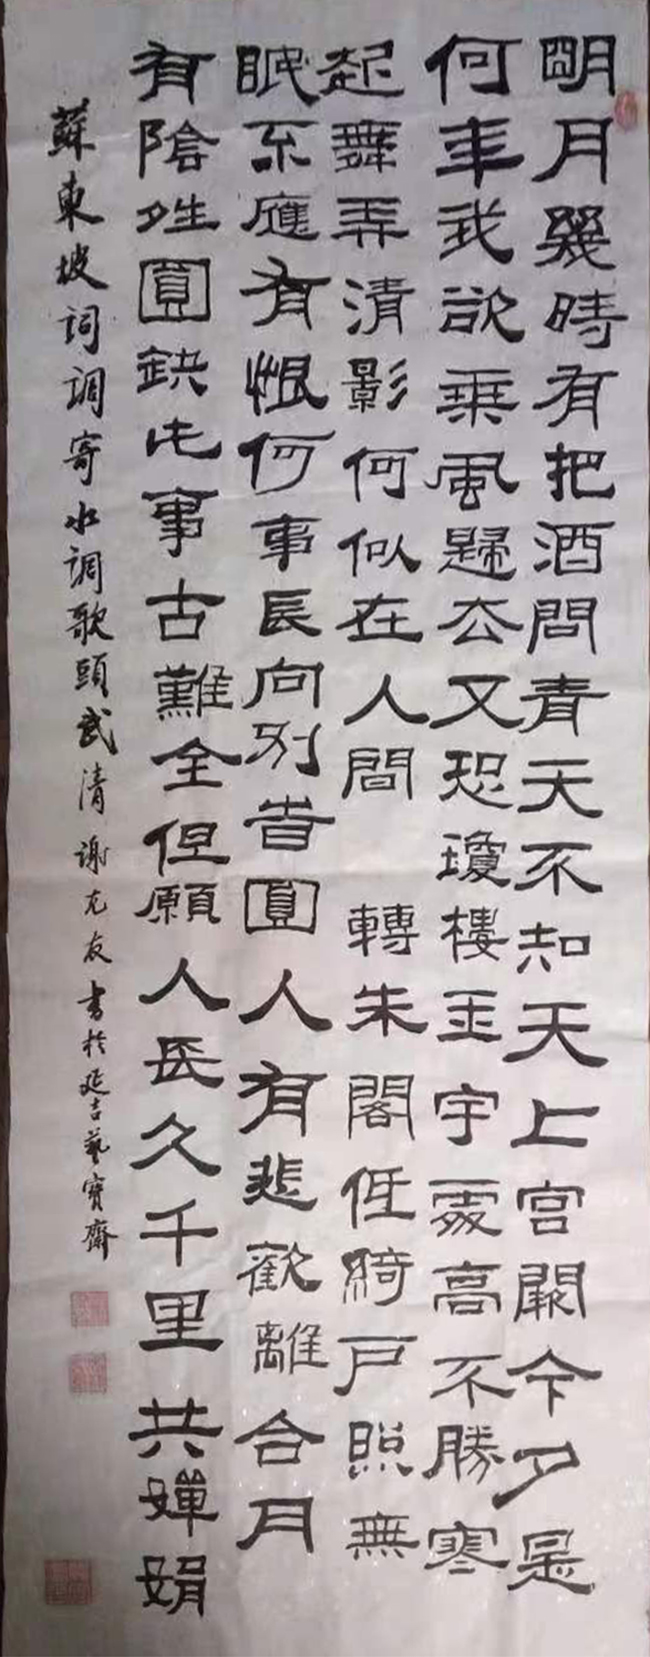 明月幾時有把酒問青天不知天上宮闕今夕是
何年我欲乘風歸去又恐瓊樓玉宇處高不勝寒
起舞弄清影何似在人間 轉朱閣低綺戶照無
眠不應有恨何事長向別時圓人有悲歡離合月
有陰晴圓缺此事古難全但願人長久千里共嬋娟
蘇東坡詞調寄水調歌頭武清謝友書於延吉藝寶齋